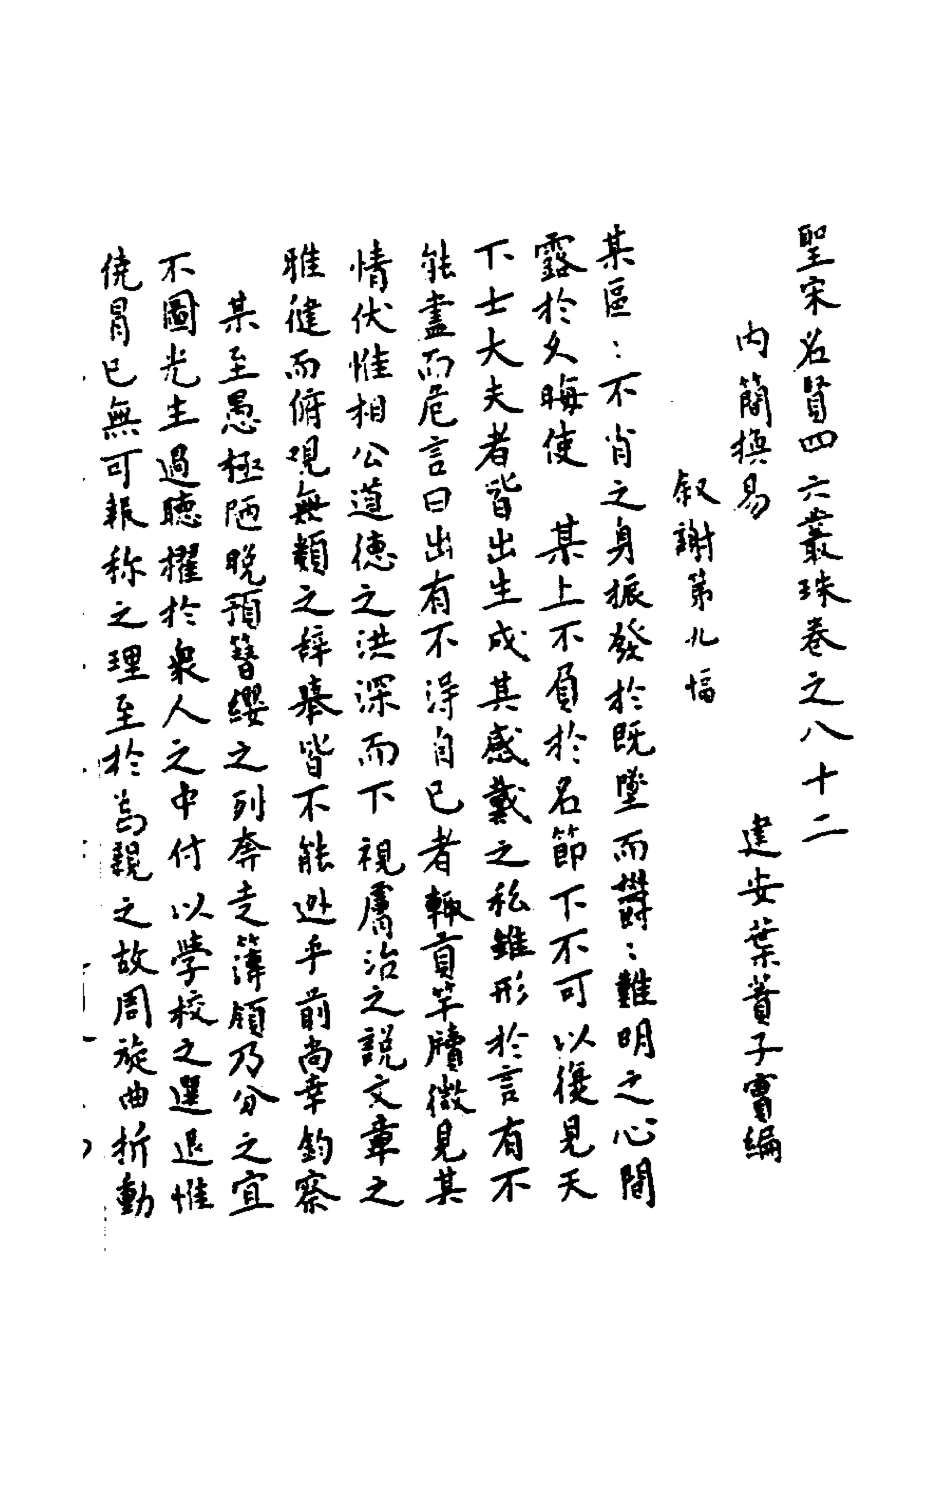 聖宋名賢四六叢珠卷之八十二
建安葉蕡子實編
内簡換易
叙謝第九幅
某區:不肖之身振發於既墜而欝:難明之心開
露於久晦使　某上不負於名節下不可以復見天
下士大夫者皆出生成其感戴之私雖形於言有不
能盡而危言曰出有不淂自已者輙貢竿牘微見其
情伏惟相公道德之洪深而下視膚治之説文章之
雅健而俯覌無類之辞舉皆不能逃乎前尚幸鈞察
某至愚極陋晚預簮纓之列奔走簿領乃分之宜
不圖光生過聽擢於衆人之中付以學校之選退惟
侥冒已無可報称之理至於為親之故周旋曲折動